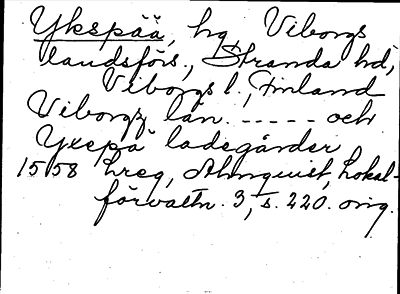 Ykspää, hg, Viborgs
landsförs., Stranda hd,
Viborgs l., Finland
Viborgz län. ----- och
Yxepä ladegårder
1558 hreg, Almquist, Lokal-
förvaltn. 3, s. 220. orig.